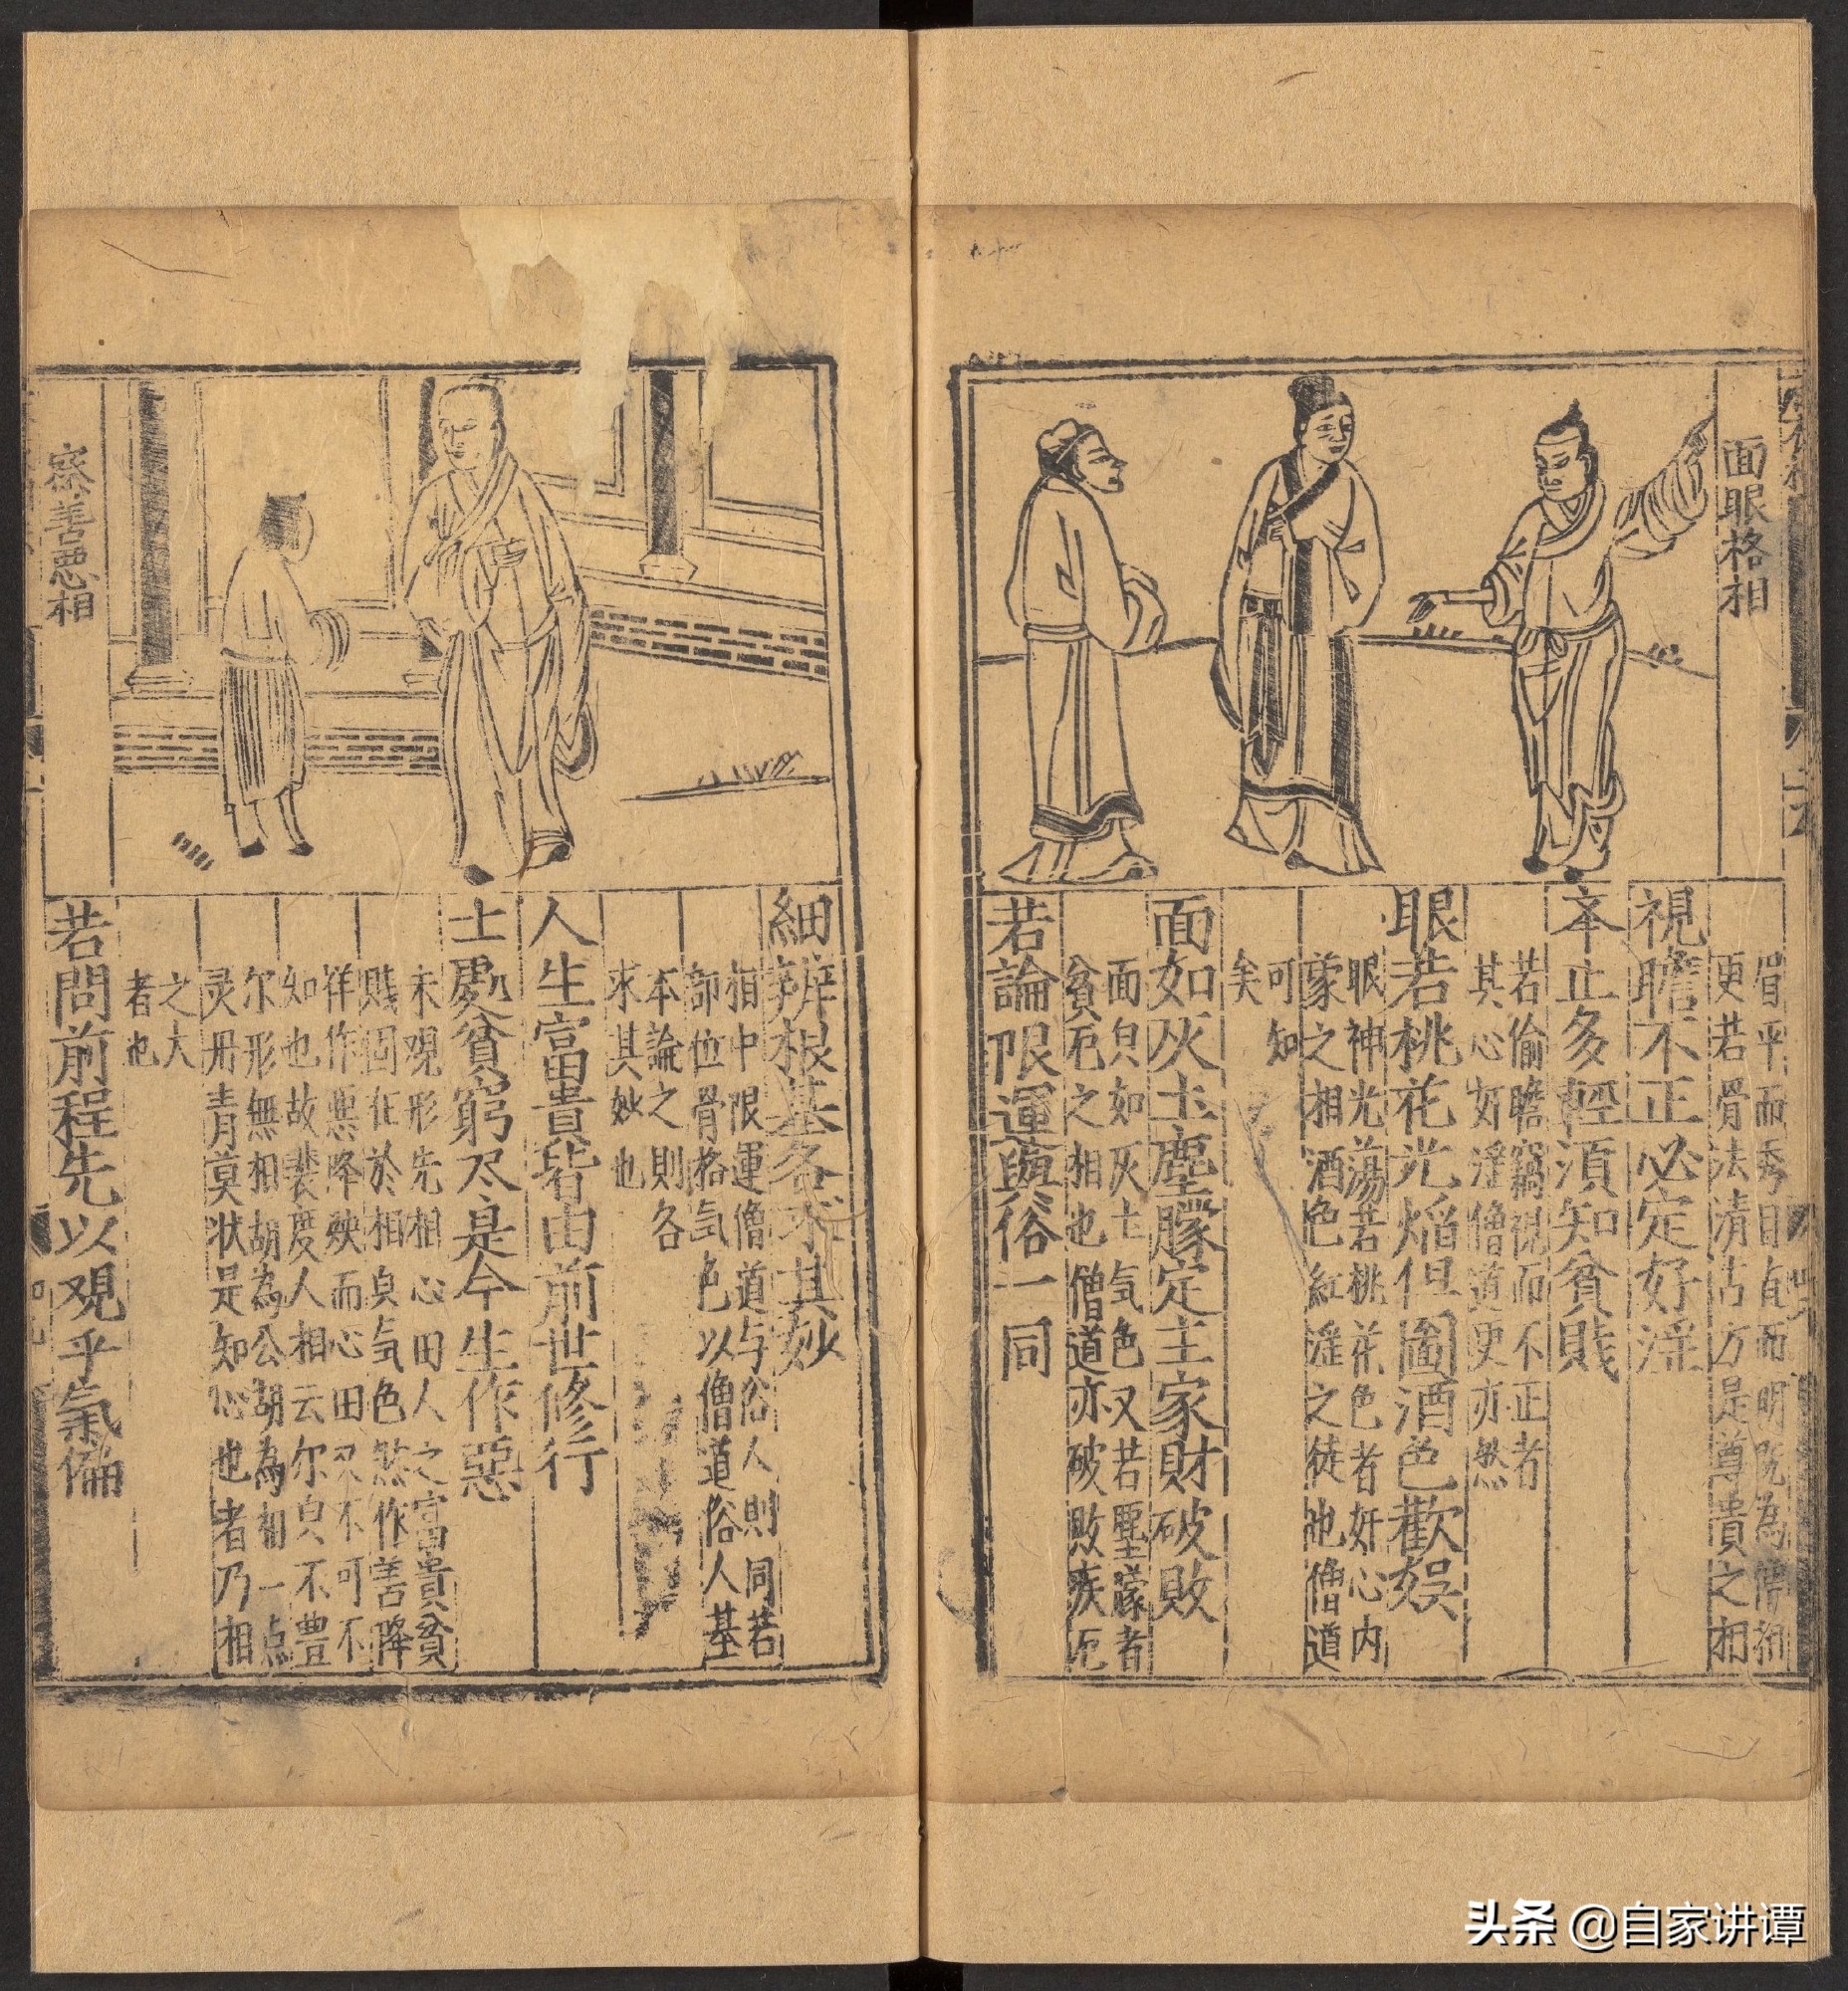 面眼格相
眉平而秀目直而明既為僧相
更若骨法清古方是尊貴之相
視瞻不正必定好淫
若偷瞻竊視而不正者
其心好淫僧道更亦然
夲止多輕湏知貧賎
眼若桃花光焰但圖酒色歡娯
眼神光蕩若桃花色者奸心内
蒙之相酒色紅淫之徒也僧道
可知
矣
面如灰土塵朦定主家財破敗
面㒲如灰土気色又若塵朦者
貧厄之相也僧道亦破敗疾厄
若論限運與俗一同
細辨根基各求其妙
相中限運僧道与俗人則同若
部位骨格気色以僧道俗人基
本論之則各
求其妙也
人生富貴皆由前世修行
士處貧窮尽是今生作惡
未观形先相心田人之富貴貧
賎固在於相㒵気色然作善降
祥作悪降殃而心田又不可不
知也故裴度人相云尔㒵不豊
尔形無相胡為公胡為相一点
灵丹青莫状是知心也者乃相
之大
者也
察善悪相
若問前程先以观乎氣倫
头条 @自家讲谭